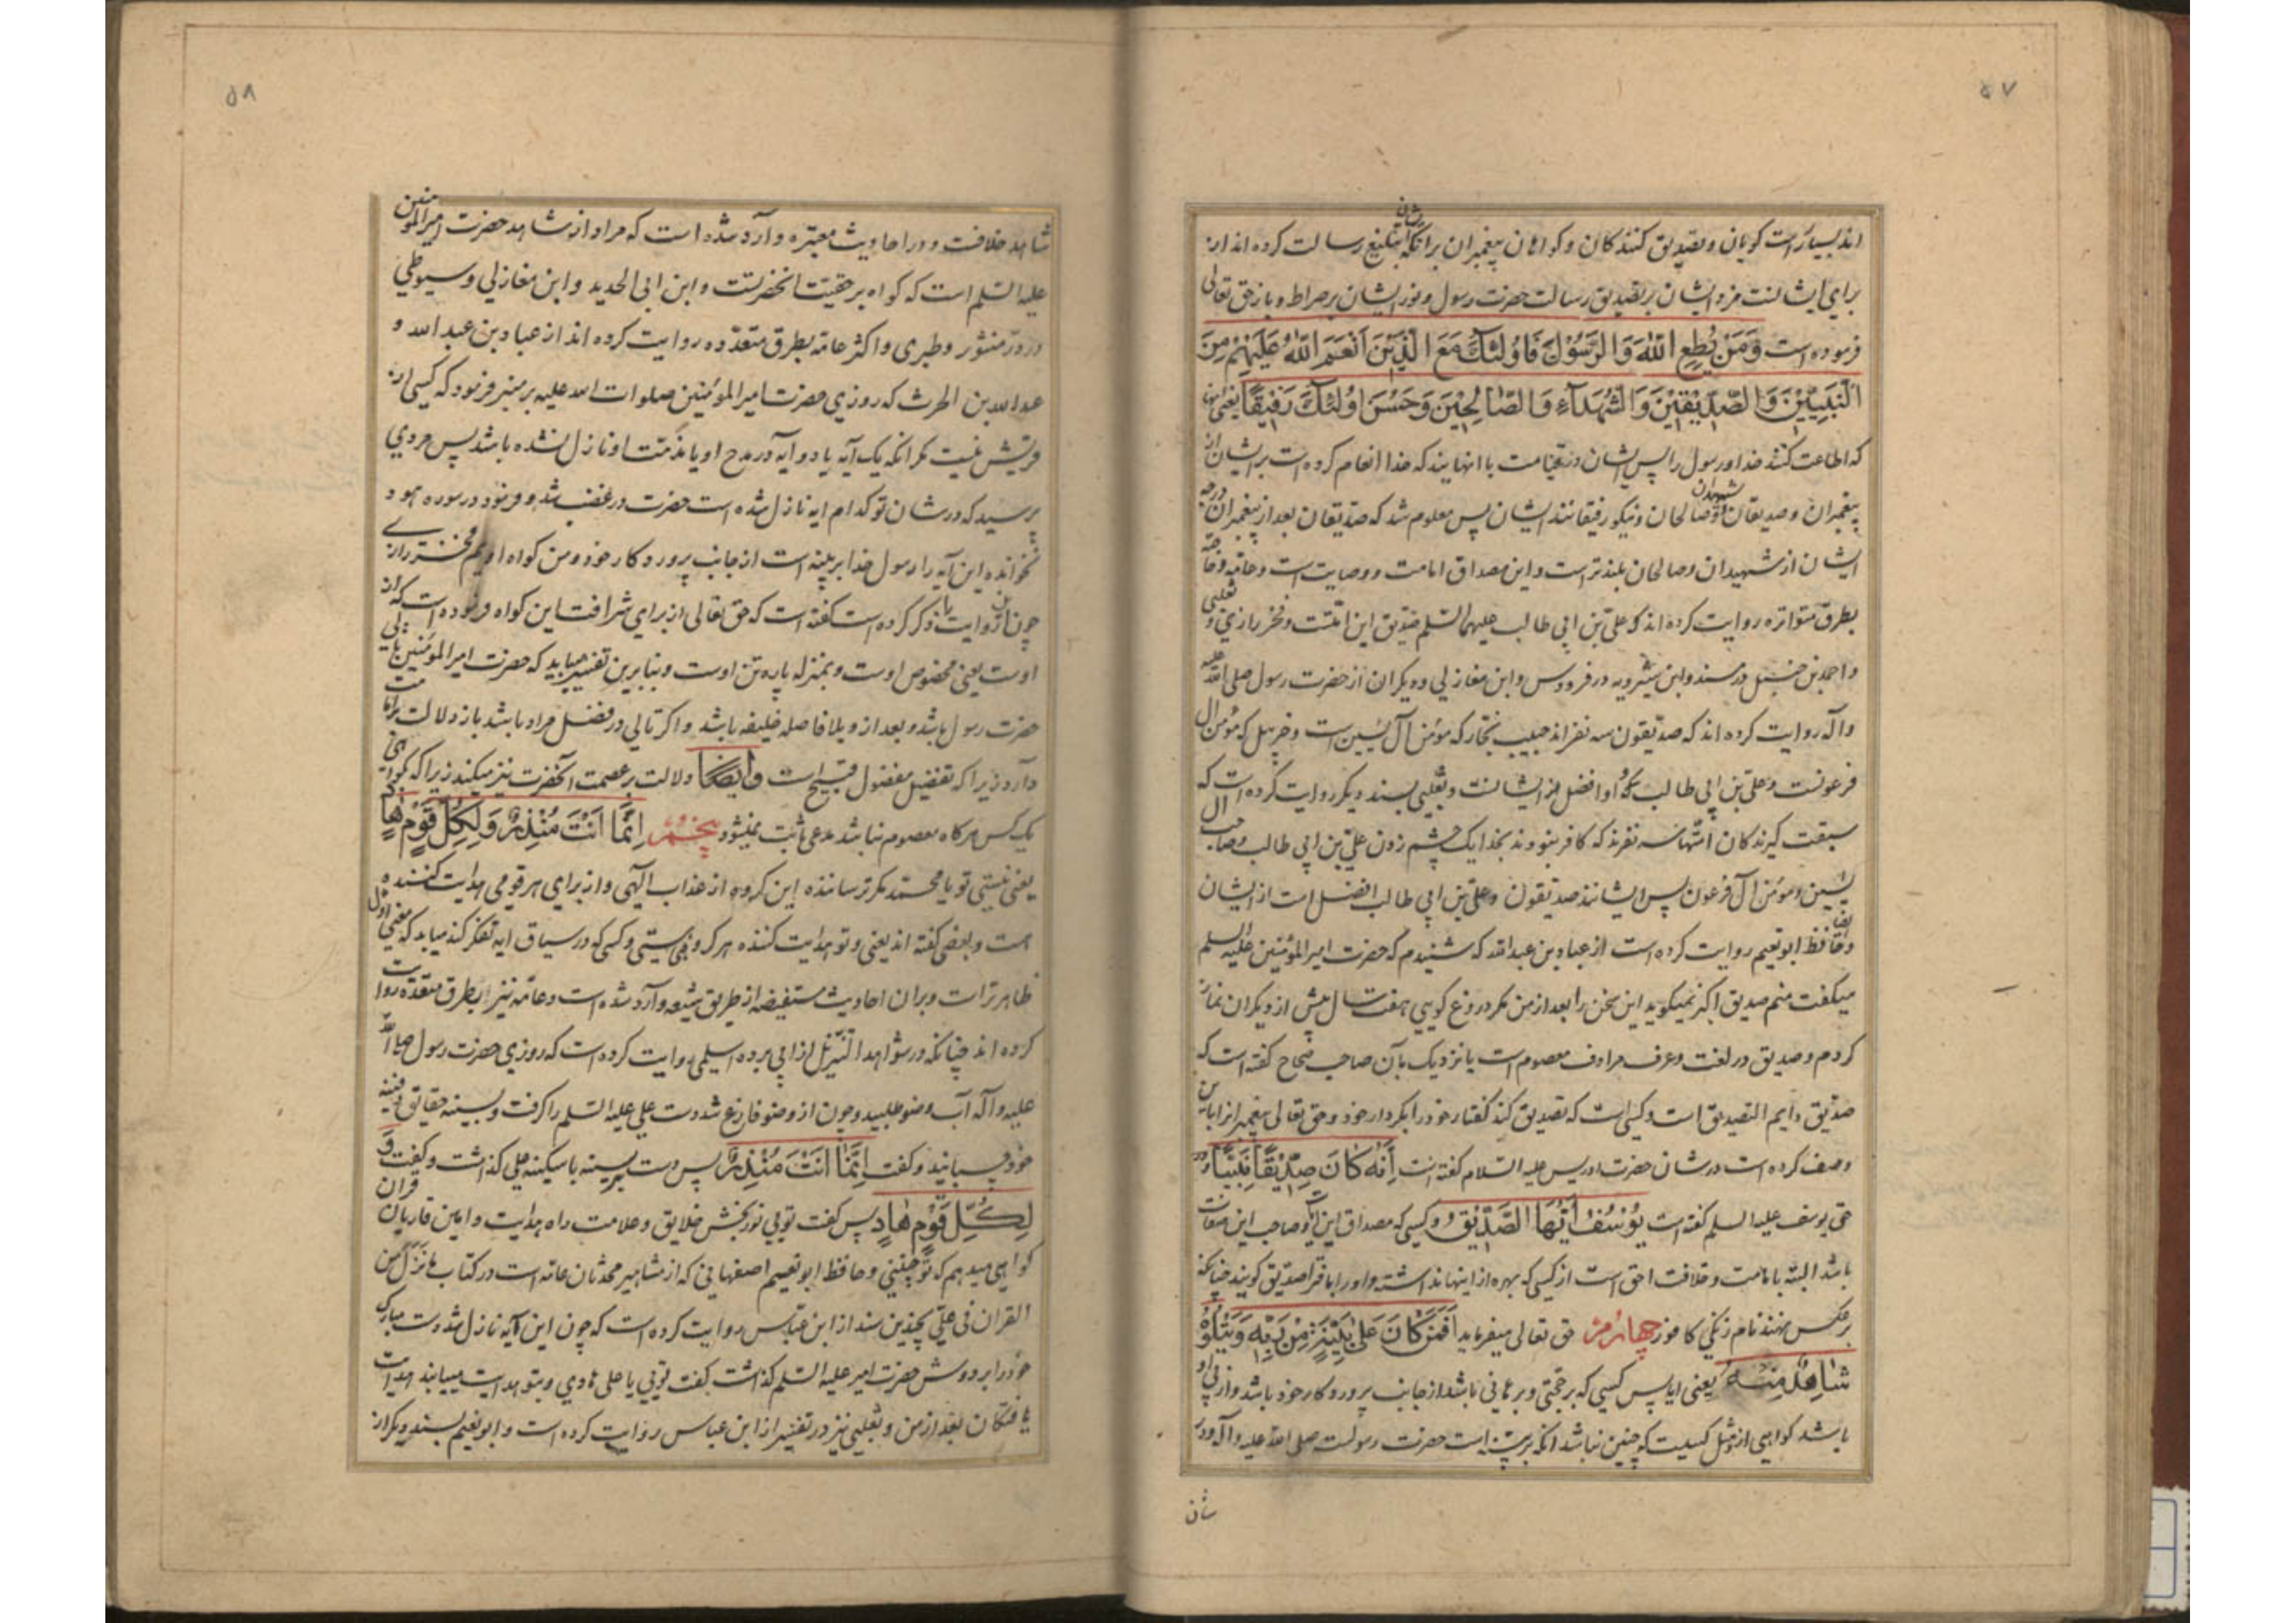 ۵۷
اند بسیار راست گویان و تصدیق کنندگان و گواهان پیغمبران برآنکه ایشان تبلیغ رسالت کرده اند از
برای ایشانست مزد ایشان بر تصدیق رسالت حضرت رسول و نور ایشان بر صراط و باز حق تعالی
فرموده است وَمَنْ يُطِعِ اللّٰهَ وَالرَّسُوْلَ فَاُولٰئِكَ مَعَ الَّذِيْنَ اَنْعَمَ اللّٰهُ عَلَيْهِمْ مِنَ
النَّبِيّيْنَ وَالصِّدّيْقيْنَ وَالشُّهَدَآءِ وَالصّالِحيْنَ وَحَسُنَ اُولٰئِكَ رَفيْقًا یعنی آنها
که اطاعت کنند خدا و رسول را پس ایشان در قیامت با آنهایند که خدا انعام کرده است بر ایشان از
پیغمبران و صدیقان و شهیدان و صالحان و نیکو رفیقانند ایشان پس معلوم شد که صدیقان بعد از پیغمبران درجه
ایشان از شهیدان و صالحان بلندتر است و این مصداق امامت و وصایت است و عامه و خاصه
بطرق متواتره روایت کرده اند که علی بن ابی طالب علیهما السلم صدیق این امتست و فخر رازی و ثعلبی
و احمد بن حنبل در مسند و ابن شیرویه در فردوس و ابن مغازلی و دیگران از حضرت رسول صلی الله علیه
وآله روایت کرده اند که صدیقون سه نفرند حبیب نجار که مؤمن آل یسین است و خربیل که مؤمن ال
فرعونست و علی بن ابی طالب که او افضل از ایشانست و ثعلبی بسند دیگر روایت کرده است که
سبقت گیرندگان امتها سه نفرند که کافر نبودند بخدا یک چشم زدن علی بن ابی طالب و صاحب ال
یسین و مؤمن آل فرعون پس ایشانند صدیقون و علی بن ابی طالب افضل است از ایشان
و ایضا حافظ ابو نعیم روایت کرده است از عباد بن عبدالله که شنیدم که حضرت امیر المؤمنین علیه السلم
میگفت منم صدیق اکبر نمیگوید این سخن را بعد از من مگر دروغ گویی هفت سال پیش از دیگران نماز
کردم و صدیق در لغت و عرف مرادف معصوم است یا نزدیک بآن صاحب صحاح گفته است که
صدّیق دایم التصدیق است و کسی است که تصدیق کند گفتار خود را بکردار خود و حق تعالی پیغمبران را باین
وصف کرده است در شان حضرت ادریس علیه السلام گفته است اِنَّهُ كَانَ صِدّيْقًا نَبِيًّا و در
حق یوسف علیه السلم گفته است يُوْسُفُ اَيُّهَا الصِّدّيْقُ و کسی که مصداق این آیات و صاحب این صفات
باشد البته بامامت و خلافت احق است از کسی که بهره از اینها نداشته و او را بافترا صدیق گویند چنانکه
برعکس نهند نام زنگی کافور چهارم حق تعالی میفرماید اَفَمَنْ كَانَ عَلٰى بَيِّنَةٍ مِنْ رَبِّهِ وَيَتْلُوْهُ
شَاهِدٌ مِنْهُ یعنی ایا پس کسی که بر حجتی و برهانی باشد از جانب پروردگار خود باشد و از پی او
باشد گواهی از او مثل کسیست که چنین نباشد انکه بر بینه است حضرت رسولست صلی الله علیه وآله و در
شان
۵۸
شاهد خلافست و در احادیث معتبره وارد شده است که مراد از شاهد حضرت امیر المؤمنین
علیه السلم است که گواه بر حقیت انحضرتست و ابن ابی الحدید و ابن مغازلی و سیوطی
در در منثور و طبری و اکثر عامه بطرق متعدده روایت کرده اند از عباد بن عبدالله و
عبدالله بن الحرث که روزی حضرت امیر المؤمنین صلوات الله علیه بر منبر فرمود که کسی از
قریش نیست مگر انکه یک آیه یا دو آیه در مدح او یا مذمت او نازل نشده باشد پس مردی
پرسید که در شان تو کدام ایه نازل شده است حضرت در غضب شد و فرمود در سوره هود
نخوانده این آیه را رسول خدا بر بینه است از جانب پروردگار خود و من گواه اویم فخر رازی
چون این روایت را ذکر کرده است گفته است که حق تعالی از برای شرافت این گواه فرموده است که از
اوست یعنی مخصوص اوست و بمنزله پاره تن اوست و بنابرین تفسیر میباید که حضرت امیر المؤمنین تالی
حضرت رسول باشد و بعد از وی بلا فاصله خلیفه باشد و اگر تالی در فضل مراد باشد باز دلالت بر امامت
دارد زیرا که تفضیل مفضول قبیح است و ایضًا دلالت بر عصمت آنحضرت نیز میکند زیرا که گواهی
یک کس هرگاه معصوم نباشد مدعی ثابت نمیشود پنجم اِنَّمَا اَنْتَ مُنْذِرٌ وَلِكُلِّ قَوْمٍ هَادٍ
یعنی نیستی تو یا محمد مگر ترساننده این گروه از عذاب الهی و از برای هر قومی هدایت کننده
هست و بعضی گفته اند یعنی و تو هدایت کننده هر گروهی استی و کسی که در سیاق ایه تفکر کند میابد که معنی اول
ظاهرتر است و بران احادیث مستفیضه از طریق شیعه وارد شده است و عامه نیز بطرق متعدده روایت
کرده اند چنانکه در شواهد التنزیل از ابی برده اسلمی روایت کرده است که روزی حضرت رسول صلی الله
علیه وآله آب وضو طلبید و چون از وضو فارغ شد دست علی علیه السلم را گرفت و بسینه حقایق دفینه
خود چسبانید و گفت اِنَّمَا اَنْتَ مُنْذِرٌ پس دست بر سینه باسکینه علی گذاشت و گفت وَ
لِكُلِّ قَوْمٍ هَادٍ پس گفت تویی نور بخش خلایق و علامت راه هدایت و امین قاریان قران
گواهی میدهم که تو چنینی و حافظ ابو نعیم اصفهانی که از مشاهیر محدثان عامه است در کتاب ما نزل من
القران فی علی بچندین سند از ابن عباس روایت کرده است که چون این آیه نازل شد دست مبارک
خود را بر دوش حضرت امیر علیه السلم گذاشت گفت تویی یا علی هادی و بتو هدایت مییابند هدایت
یافتگان بعد از من و ثعلبی نیز در تفسیر از ابن عباس روایت کرده است و ابو نعیم بسند دیگر از